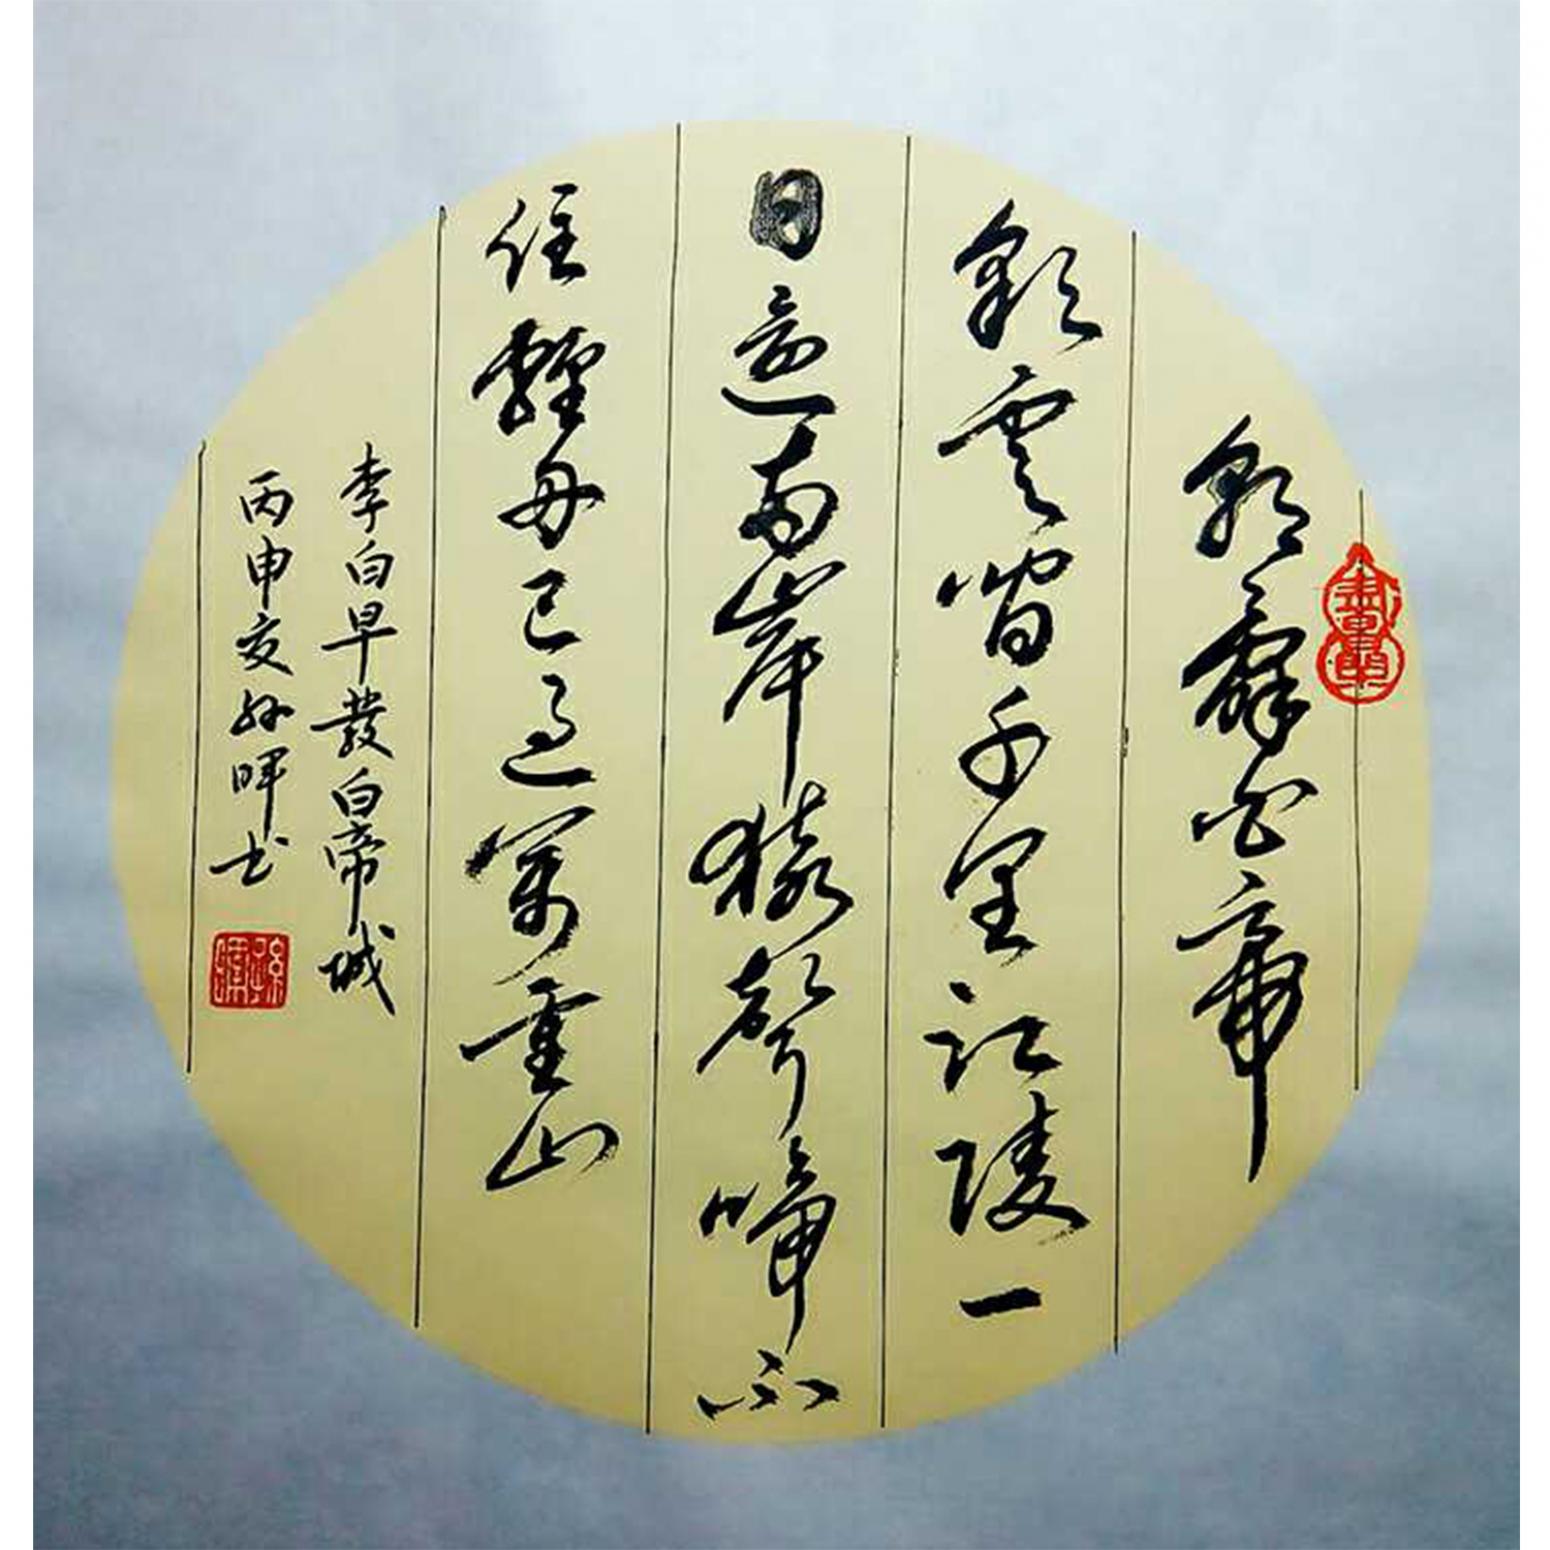 朝辭白帝
彩雲間千里江陵一
日還兩岸猿聲啼不
住輕舟已過萬重山
李白早發白帝城
丙申夏孫暉书
孫暉